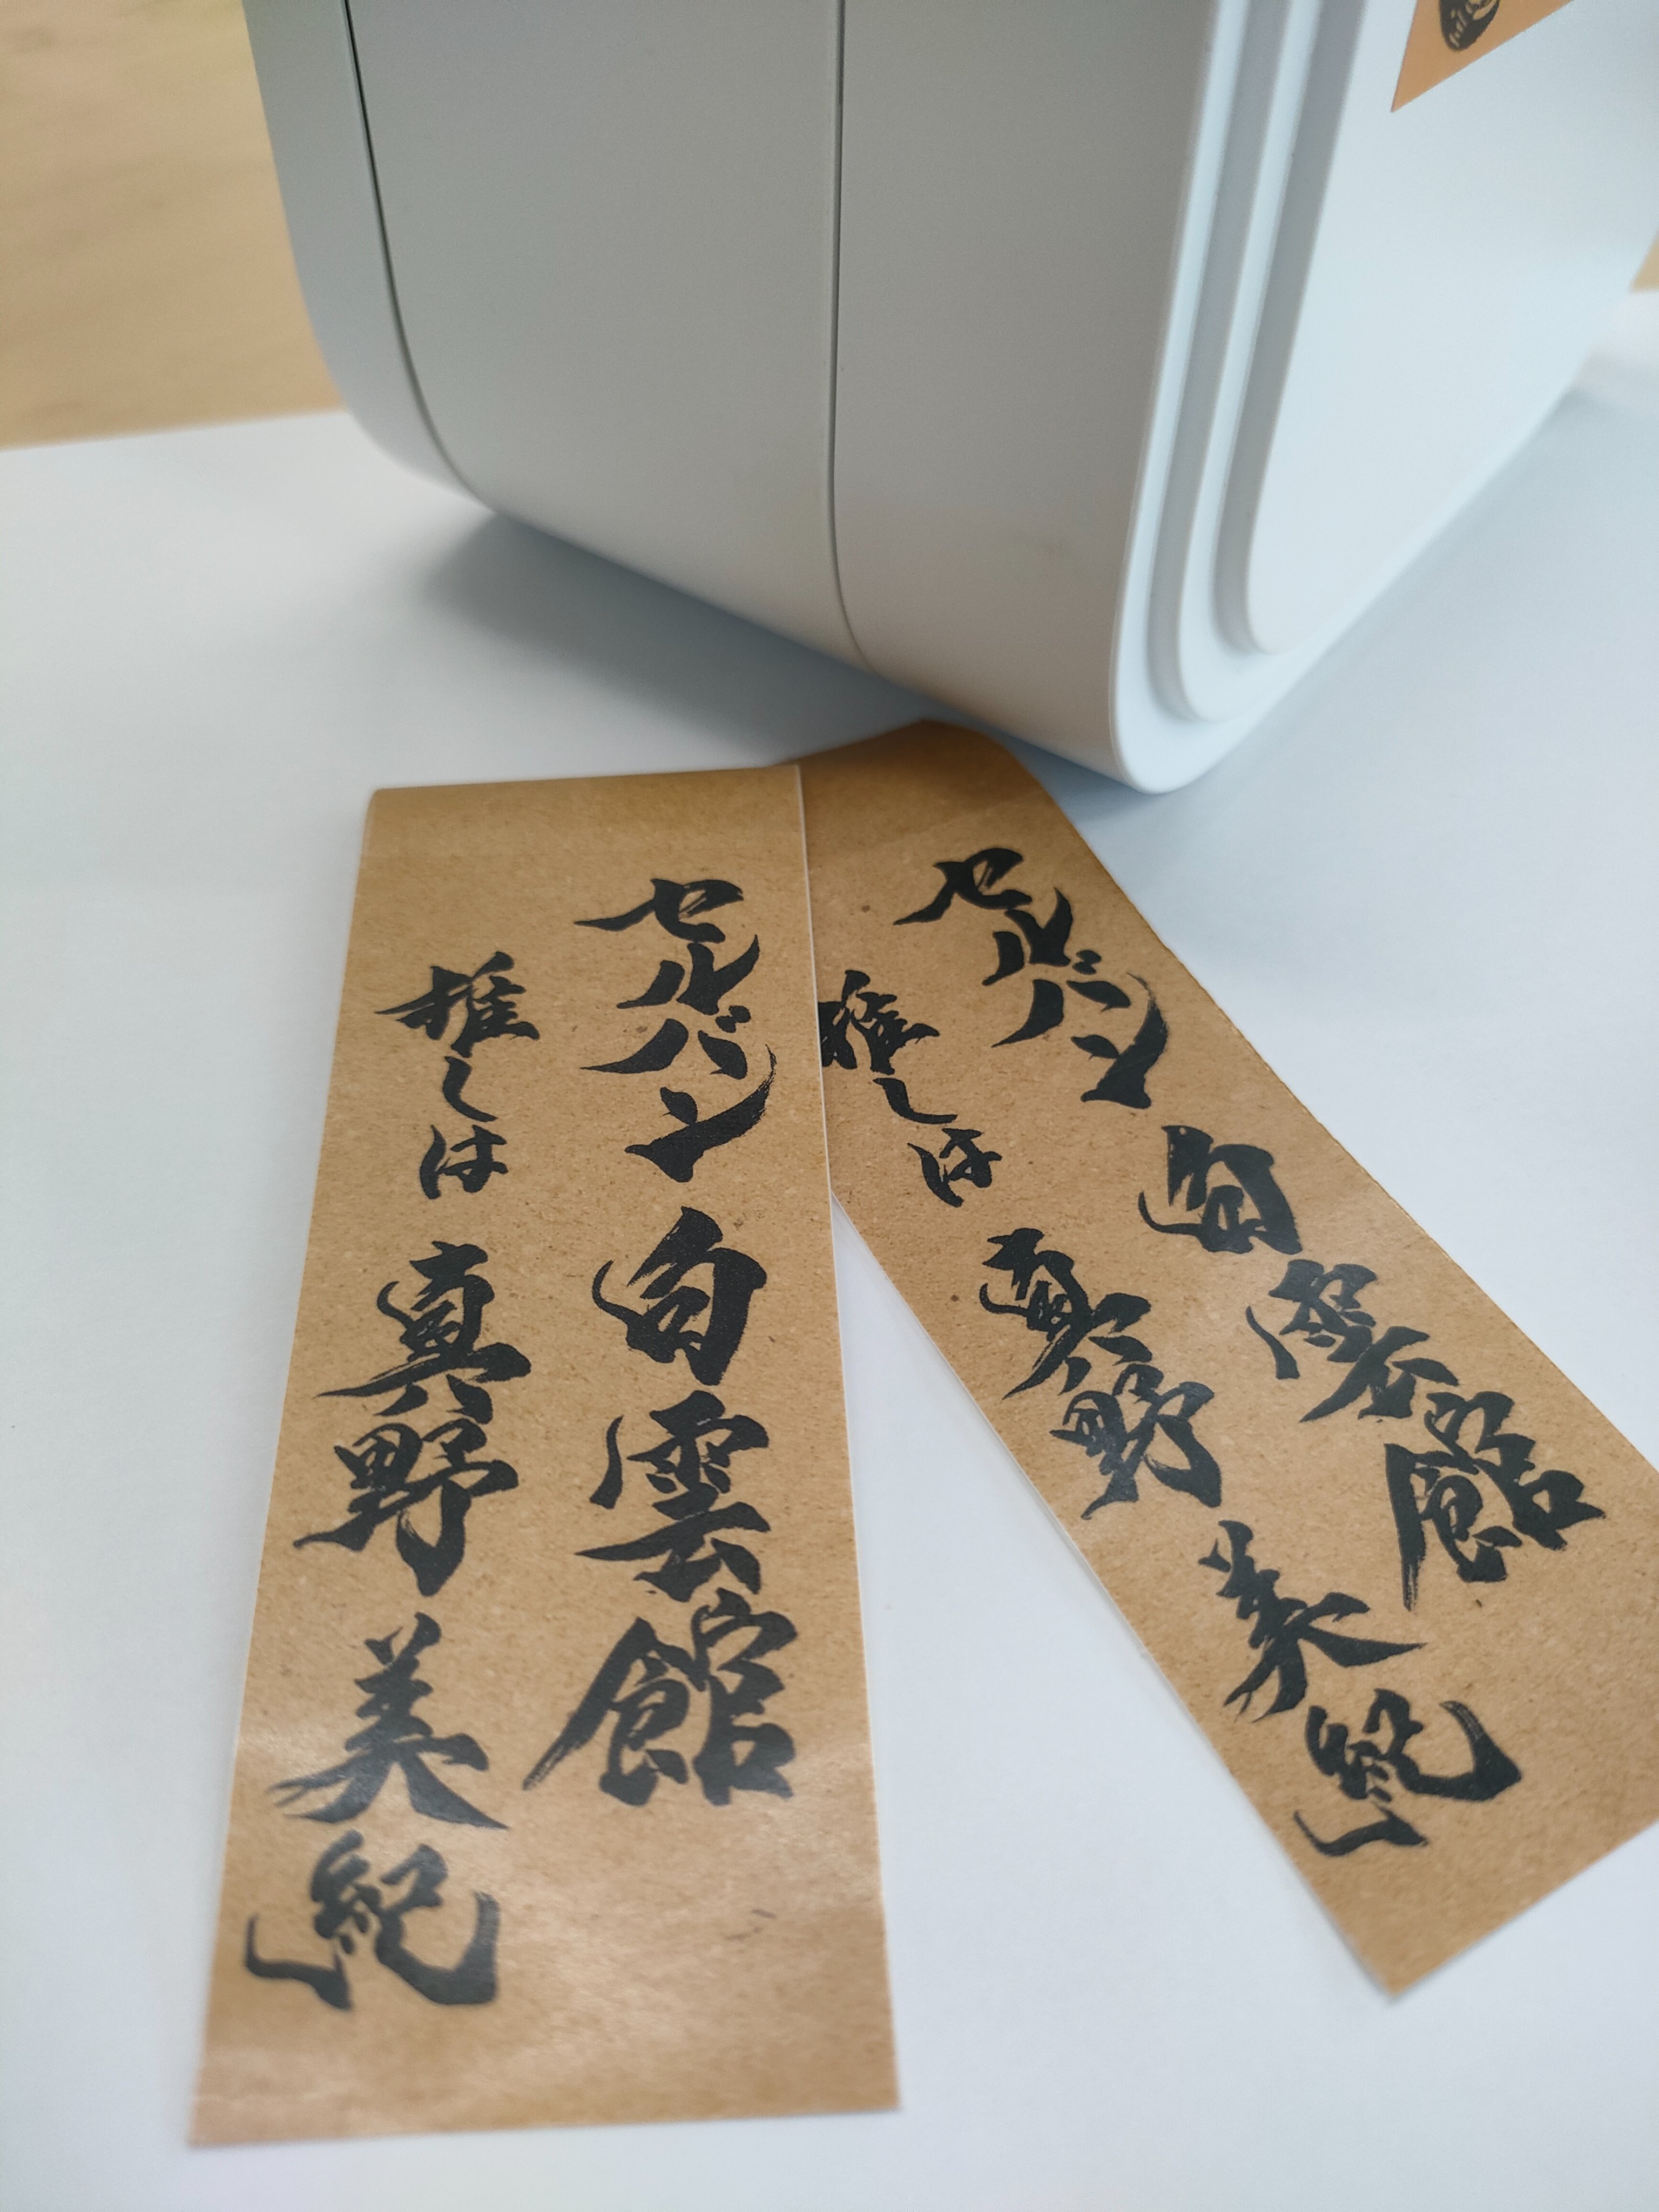 セルバン 白雲館
推しは 真野 美紀
セルバン 白雲館
推しは 真野 美紀